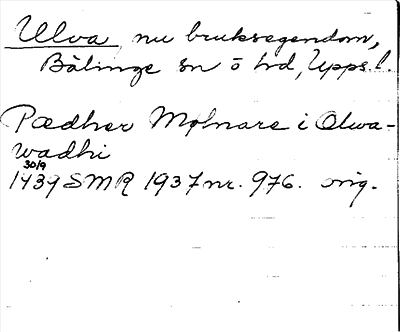 Ulva, nu bruksegendom,
Bälinge sn o hd, Upps. l.
Pædher Mølnare i Olwa-
wadhi
30/9
1439 SMR 1937 nr. 976. orig.